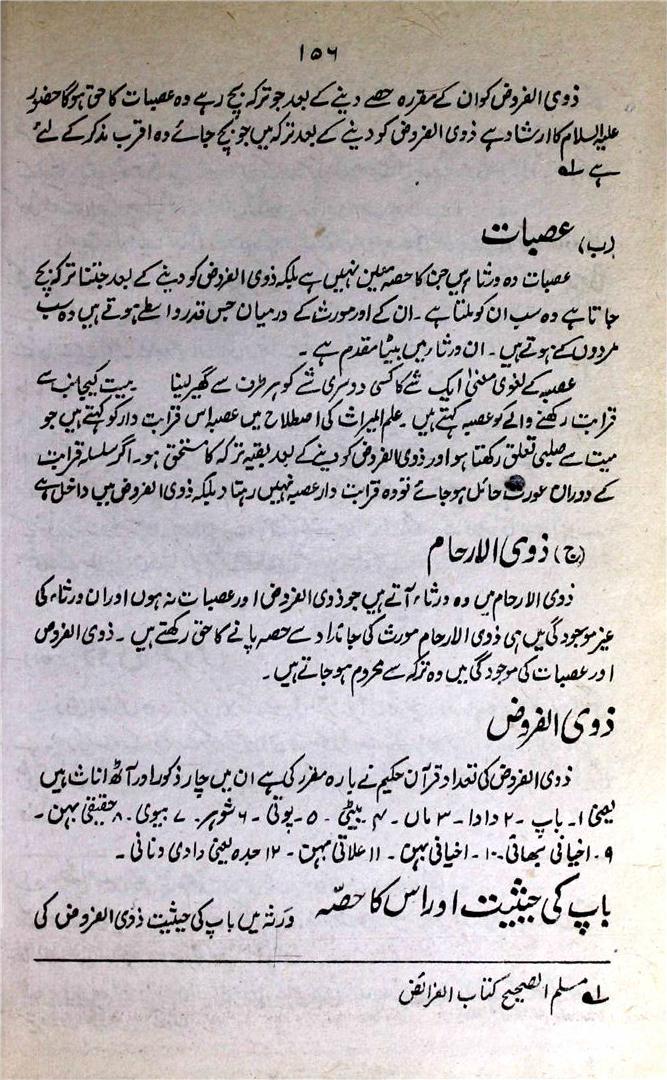 ۱۵۶
ذوی الفروض کو ان کے مقررہ حصے دینے کے بعد جو ترکہ بچ رہے وہ عصبات کا حق ہوگا حضور
علیہ السلام کا ارشاد ہے ذوی الفروض کو دینے کے بعد ترکہ میں جو بچ جائے وہ اقرب مذکر کے لئے
ہے ؎۱
(ب) عصبات
عصبات وہ ورثاء ہیں جن کا حصہ معین نہیں ہے بلکہ ذوی الفروض کو دینے کے بعد جتنا ترکہ بچ
جاتا ہے وہ سب ان کو ملتا ہے ۔ ان کے اور مورث کے درمیان جس قدر واسطے ہوتے ہیں وہ سب
مردوں کے ہوتے ہیں ۔ ان ورثاء میں بیٹا مقدم ہے ۔
عصبہ کے لغوی معنیٰ ایک شے کا کسی دوسری شے کو ہر طرف سے گھیر لینا میت کیجانب سے
قرابت رکھنے والے کو عصبہ کہتے ہیں ۔ علم المیراث کی اصطلاح میں عصبہ اس قرابت دار کو کہتے ہیں جو
میت سے صلبی تعلق رکھتا ہو اور ذوی الفروض کو دینے کے بعد بقیہ ترکہ کا مستحق ہو ۔ اگر سلسلہ قرابت
کے دوران عورت حائل ہو جائے تو وہ قرابت دار عصبہ نہیں رہتا بلکہ ذوی الفروض میں داخل ہے
(ج) ذوی الارحام
ذوی الارحام میں وہ ورثاء آتے ہیں جو ذوی الفروض اور عصبات نہ ہوں اور ان ورثاء کی
غیر موجودگی میں ہی ذوی الارحام مورث کی جائداد سے حصہ پانے کا حق رکھتے ہیں ۔ ذوی الفروض
اور عصبات کی موجودگی میں وہ ترکہ سے محروم ہو جاتے ہیں ۔
ذوی الفروض
ذوی الفروض کی تعداد قرآن حکیم نے بارہ مقرر کی ہے ان میں چار ذکور اور آٹھ اناث ہیں
یعنی ۱۔ باپ ۔ ۲ دادا ۔ ۳ ماں ۔ ۴ بیٹی ۔ ۵ ۔ پوتی ۔ ۶ شوہر ۔ ۷ بیوی ۔ ۸ حقیقی بہن ۔
۹ ۔ اخیافی بھائی ۔ ۱۰ ۔ اخیافی بہن ۔ ۱۱ علاتی بہن ۔ ۱۲ جدہ یعنی دادی و نانی ۔
باپ کی حیثیت اور اس کا حصّہ ورثہ میں باپ کی حیثیت ذوی الفروض کی
؎۱ مسلم الصحیح کتاب الفرائض